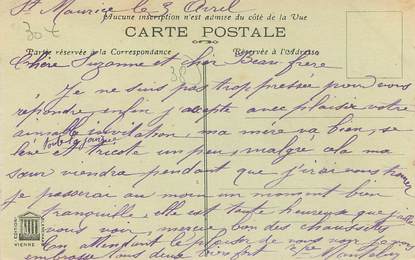 St Maurice le 3 Avril
Aucune inscription n'est admise du côté de la Vue
304
CARTE POSTALE
Partie réservée à la Correspondance
Réservée à l'Adresse
Chère Suzanne et cher Beau frère
38
Je ne suis pas trop pressée pour vous
répondre enfin j'accepte avec plaisir votre
aimable invitation, ma mère va bien, se
toute la journée
lève et tricote un peu, malgré cela ma
sœur viendra pendant que j'irai vous trouver
je passerai au moins un moment bien
tranquille, elle est toute heureuse que j'aille
vous voir, merci bon des chaussettes
En attendant le plaisir de vous voir je vous
embrasse tous deux bien fort
VIENNE